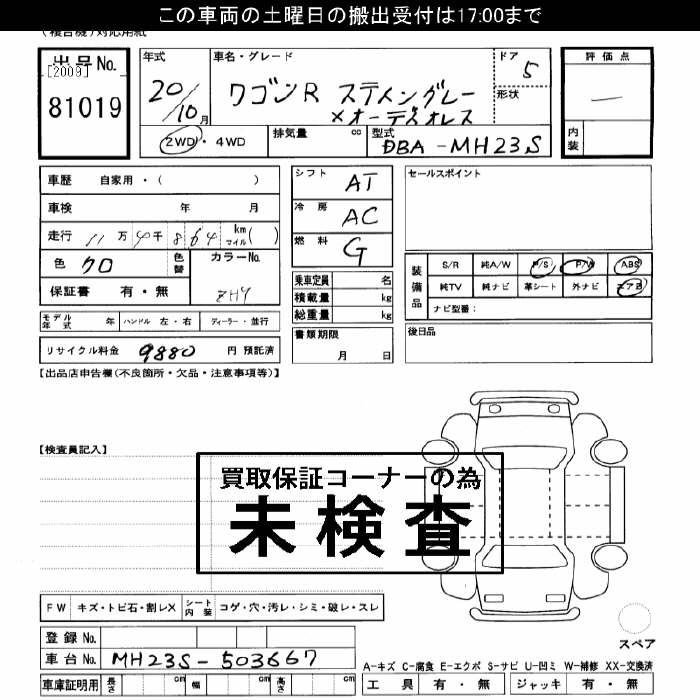 この車両の土曜日の搬出受付は17:00まで
(複合機)対応用紙
出品No.
[2009]
81019
年式
20/10月
車名・グレード
ワゴンR スティングレー
×オーディオレス
ドア
5
形状
評価点
—
内装
2WD・4WD
排気量 cc
型式
DBA-MH23S
車歴 自家用・( )
車検 年 月
走行 11万 4千 864 km マイル( )
色 クロ
色替
カラーNo.
ZHY
保証書 有・無
シフト AT
冷房 AC
燃料 G
セールスポイント
装備品
S/R 純A/W P/S P/W ABS
純TV 純ナビ 革シート 外ナビ エアB
ナビ型番：
乗車定員 名
積載量 kg
総重量 kg
モデル年式 年 ハンドル 左・右 ディーラー・並行
リサイクル料金 9880 円 預託済
書類期限
月 日
後日品
【出品店申告欄(不良箇所・欠品・注意事項等)】
【検査員記入】
買取保証コーナーの為
未検査
FW キズ・トビ石・割レX シート内装 コゲ・穴・汚レ・シミ・破レ・スレ
スペア
登録No.
車台No. MH23S-503667
車庫証明用 長さ cm 幅 cm 高さ cm
A-キズ C-腐食 E-エクボ S-サビ U-凹ミ W-補修 XX-交換済
工具 有・無 ジャッキ 有・無